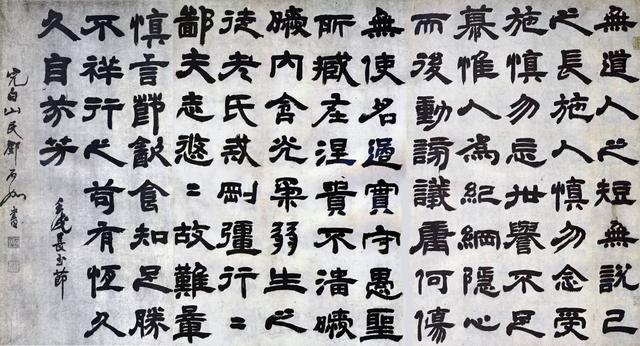 無道人之短無說己
之長施人慎勿念受
施慎勿忘世譽不足
慕惟人為紀綱隱心
而後動謗議庸何傷
無使名過實守愚聖
所臧在涅貴不淄曖
曖內含光柔弱生之
徒老氏戒剛彊行〻
鄙夫志悠〻故難量
慎言節飲食知足勝
不祥行之苟有恆久
久自芬芳
壬戌長至節
完白山民鄧石如書